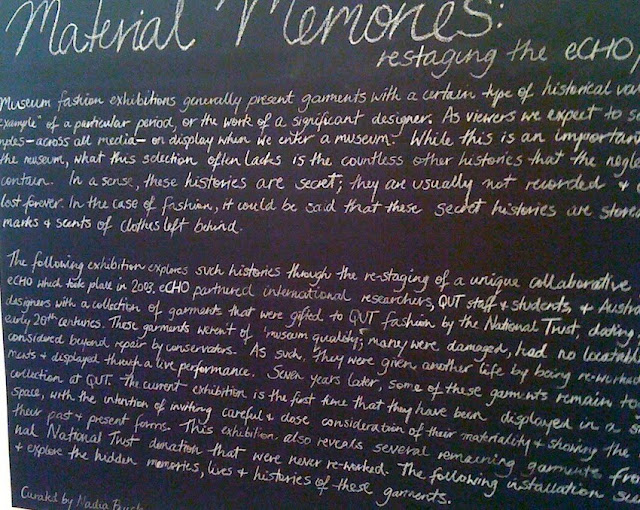 Material Memories:
restaging the eCHO
Museum fashion exhibitions generally present garments with a certain type of historical
example" of a particular period, or the work of a significant designer. As viewers we expect to
-across all media- on display when we enter a museum. While this is an important
the museum, what this selection often lacks is the countless other histories that the
contain. In a sense, these histories are secret; they are usually not recorded &
lost forever. In the case of fashion, it could be said that these secret histories are
marks & scents of clothes left behind.
The following exhibition explores such histories through the re-staging of a unique collaborative
eCHO which took place in 2003. eCHO partnered international researchers, QUT staff & students, &
designers with a collection of garments that were gifted to QUT fashion by the National Trust, dating
early 20th centuries. These garments weren't of 'museum quality'; many were damaged, had no
considered beyond repair by conservators. As such, they were given another life by being
& displayed through a live performance. Seven years later, some of these garments remain
collection at QUT. The current exhibition is the first time that they have been displayed in a
space, with the intention of inviting careful & close consideration of their materiality & showing the
their past & present forms. This exhibition also reveals several remaining garments from
National Trust donation that were never re-worked. The following installation
& explore the hidden memories, lives & histories of these garments.
Curated by Nadia